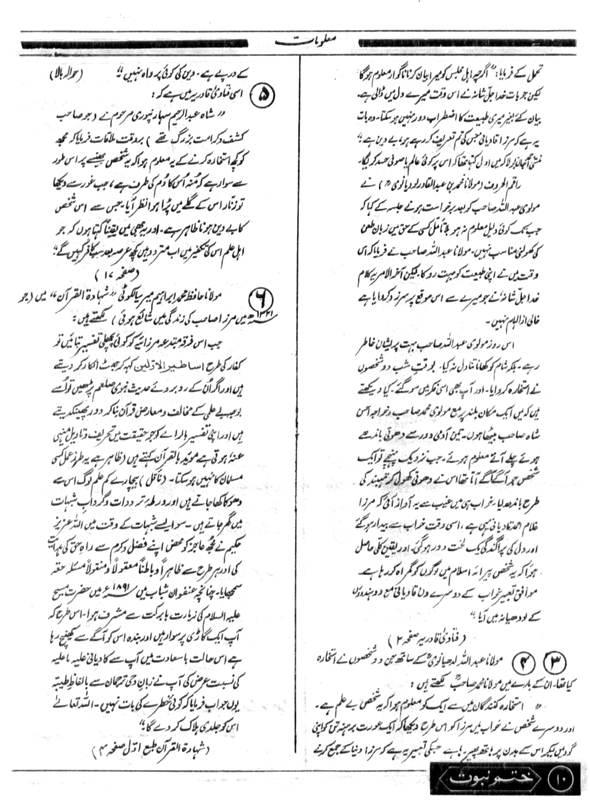 معلومات
تحمل کے فرمایا: "اگرچہ اہل مجلس کو میرا بیان کرنا ناگوار معلوم ہوگا
لیکن جو بات خدا جل شانہ نے اس وقت میرے دل میں ڈالی ہے۔
بیان کئے بغیر میری طبیعت کا اضطراب دور نہیں ہوسکتا۔ وہ بات
یہ ہے کہ مرزا قادیانی جس کی تم تعریف کر رہے ہو، بے دین ہے"
منشی احمد جان بولا کہ میں اول کہتا تھا کہ اس پر کوئی عالم یا صوفی حسد کرے گا۔
راقم الحروف (مولانا محمد بن عبدالقادر لودیانوی) نے
مولوی عبداللہ صاحب کو بعد برخاست ہونے جلسہ کے کہا کہ
جب تک کوئی دلیل معلوم نہ ہو بلا تامل کسی کے حق میں زبان طعن
کی کھولنی مناسب نہیں۔ مولانا عبداللہ صاحب نے فرمایا کہ اس
وقت میں نے اپنی طبیعت کو بہت روکا، لیکن آخر الامر یہ کلام
خدا جل شانہ نے جو میرے سے اس موقع پر سرزد کروایا ہے
خالی از الہام نہیں۔
اس روز مولوی عبداللہ صاحب بہت پریشان خاطر
رہے۔ بلکہ شام کو کھانا تناول نہ کیا۔ بوقت شب دو شخصوں
نے استخارہ کروایا۔ اور آپ بھی اسی فکر میں سو گئے۔ کیا دیکھتے
ہیں کہ میں ایک مکان بلند پر مع مولوی محمد صاحب و خواجہ احسن
شاہ صاحب بیٹھا ہوں۔ تین آدمی دور سے دھوتی باندھے
ہوئے چلے آتے معلوم ہوئے۔ جب نزدیک پہنچے تو ایک
شخص جو آگے آگے آتا تھا اس نے دھوتی کھول کر تہبند کی
طرح باندھ لیا۔ خواب ہی میں غیب سے یہ آواز آئی کہ مرزا
غلام احمد قادیانی یہی ہے، اسی وقت خواب سے بیدار ہوگئے
اور دل کی پراگندگی یک لخت دور ہوگئی، اور یقین کلی حاصل
ہوا کہ یہ شخص پیرایہ اسلام میں لوگوں کو گمراہ کر رہا ہے۔
موافق تعبیر خواب کے دوسرے دن قادیانی مع دو ہندوؤں
کے لودھیانہ میں آیا"
(فتاویٰ قادریہ صفحہ ۲)
۳ ۴ مولانا عبداللہ لدھیانوی کے ساتھ جن دو شخصوں نے استخارہ
کیا تھا، ان کے بارے میں مولانا محمد صاحب لکھتے ہیں:
"استخارہ کنندگان میں سے ایک کو معلوم ہوا کہ یہ شخص بے علم ہے۔
اور دوسرے شخص نے خواب میں مرزا کو اس طرح دیکھا کہ ایک عورت برہنہ تن کو اپنی
گود میں لیکر اس کے بدن پر ہاتھ پھیر رہا ہے جسکی تعبیر یہ ہے کہ مرزا دنیا کے جمع کرنے
کے درپے ہے، دین کی کوئی پرواہ نہیں" (حوالہ بالا)
۵ اسی فتاویٰ قادریہ میں ہے کہ:
"شاہ عبدالرحیم سہارنپوری مرحوم نے (جو صاحب
کشف و کرامت بزرگ تھے) بروقت ملاقات فرمایا کہ مجھ
کو بعد استخارہ کرنے کے یہ معلوم ہوا کہ یہ شخص بھینسے پر اس طور
سے سوار ہے کہ منہ اس کا دُم کی طرف ہے، جب غور سے دیکھا
تو زنار اس کے گلے میں پڑا ہوا نظر آیا، جس سے اس شخص
کا بے دین ہونا ظاہر ہے۔ اور یہ بھی میں یقیناً کہتا ہوں کہ جو
اہل علم اس کی تکفیر میں اب متردد ہیں کچھ عرصہ بعد سب کافر کہیں گے"
(صفحہ ۱۷)
۶ مولانا حافظ محمد ابراہیم میر سیالکوٹی "شہادۃ القرآن" میں (جو
۱۳۲۱ھ میں مرزا صاحب کی زندگی میں شائع ہوئی) لکھتے ہیں:
جب اس فرقہ مبتدعہ مرزائیہ کو کوئی پچھلی تفسیر بتائیں تو
کفار کی طرح اساطیر الاولین کہہ کر جھٹ انکار کر دیتے
ہیں اور اگر ان کے روبرو حدیث نبوی صلعم پڑھیں تو اسے
بوجہ بے علمی کے مخالف و معارض قرآن بتا کر دور پھینکدیتے
ہیں اور اپنی تفسیر بالرائے کو جو حقیقت میں تحریف و تاویل منہی
عنہ ہوتی ہے مؤید بالقرآن کہتے ہیں (ظاہر ہے یہ طرز عمل کسی
مسلمان کا نہیں ہوسکتا۔ (ناقل) بیچارے کم علم لوگ اس سے
دھوکا کھا جاتے ہیں اور ورطہ تردد ات و گرداب شبہات
میں گھر جاتے ہیں۔ سو ایسے شبہات کے وقت میں اللہ عزیز
حکیم نے مجھ عاجز کو محض اپنے فضل و کرم سے راہ حق کی ہدایت
کی اور ہر طرح سے ظاہراً و باطناً معقولاً و منقولاً مسئلہ حقہ
سمجھایا۔ چنانچہ عنفوان شباب میں ۱۸۹۱ء میں حضرت مسیح
علیہ السلام کی زیارت بابرکت سے مشرف ہوا۔ اس طرح کہ
آپ ایک گاڑی پر سوار ہیں اور بندہ اس کو آگے سے کھینچ رہا
ہے اس حالت باسعادت میں آپ سے کادیانی علیہ ما علیہ
کی نسبت عرض کی آپ نے زبان وحی ترجمان سے بالفاظ طیبہ
یوں جواب فرمایا کہ کوئی خطرے کی بات نہیں۔ اللہ تعالیٰ
اس کو جلدی ہلاک کر دے گا"
(شہادۃ القرآن طبع اول صفحہ ۴)
ختم نبوت ۱۰